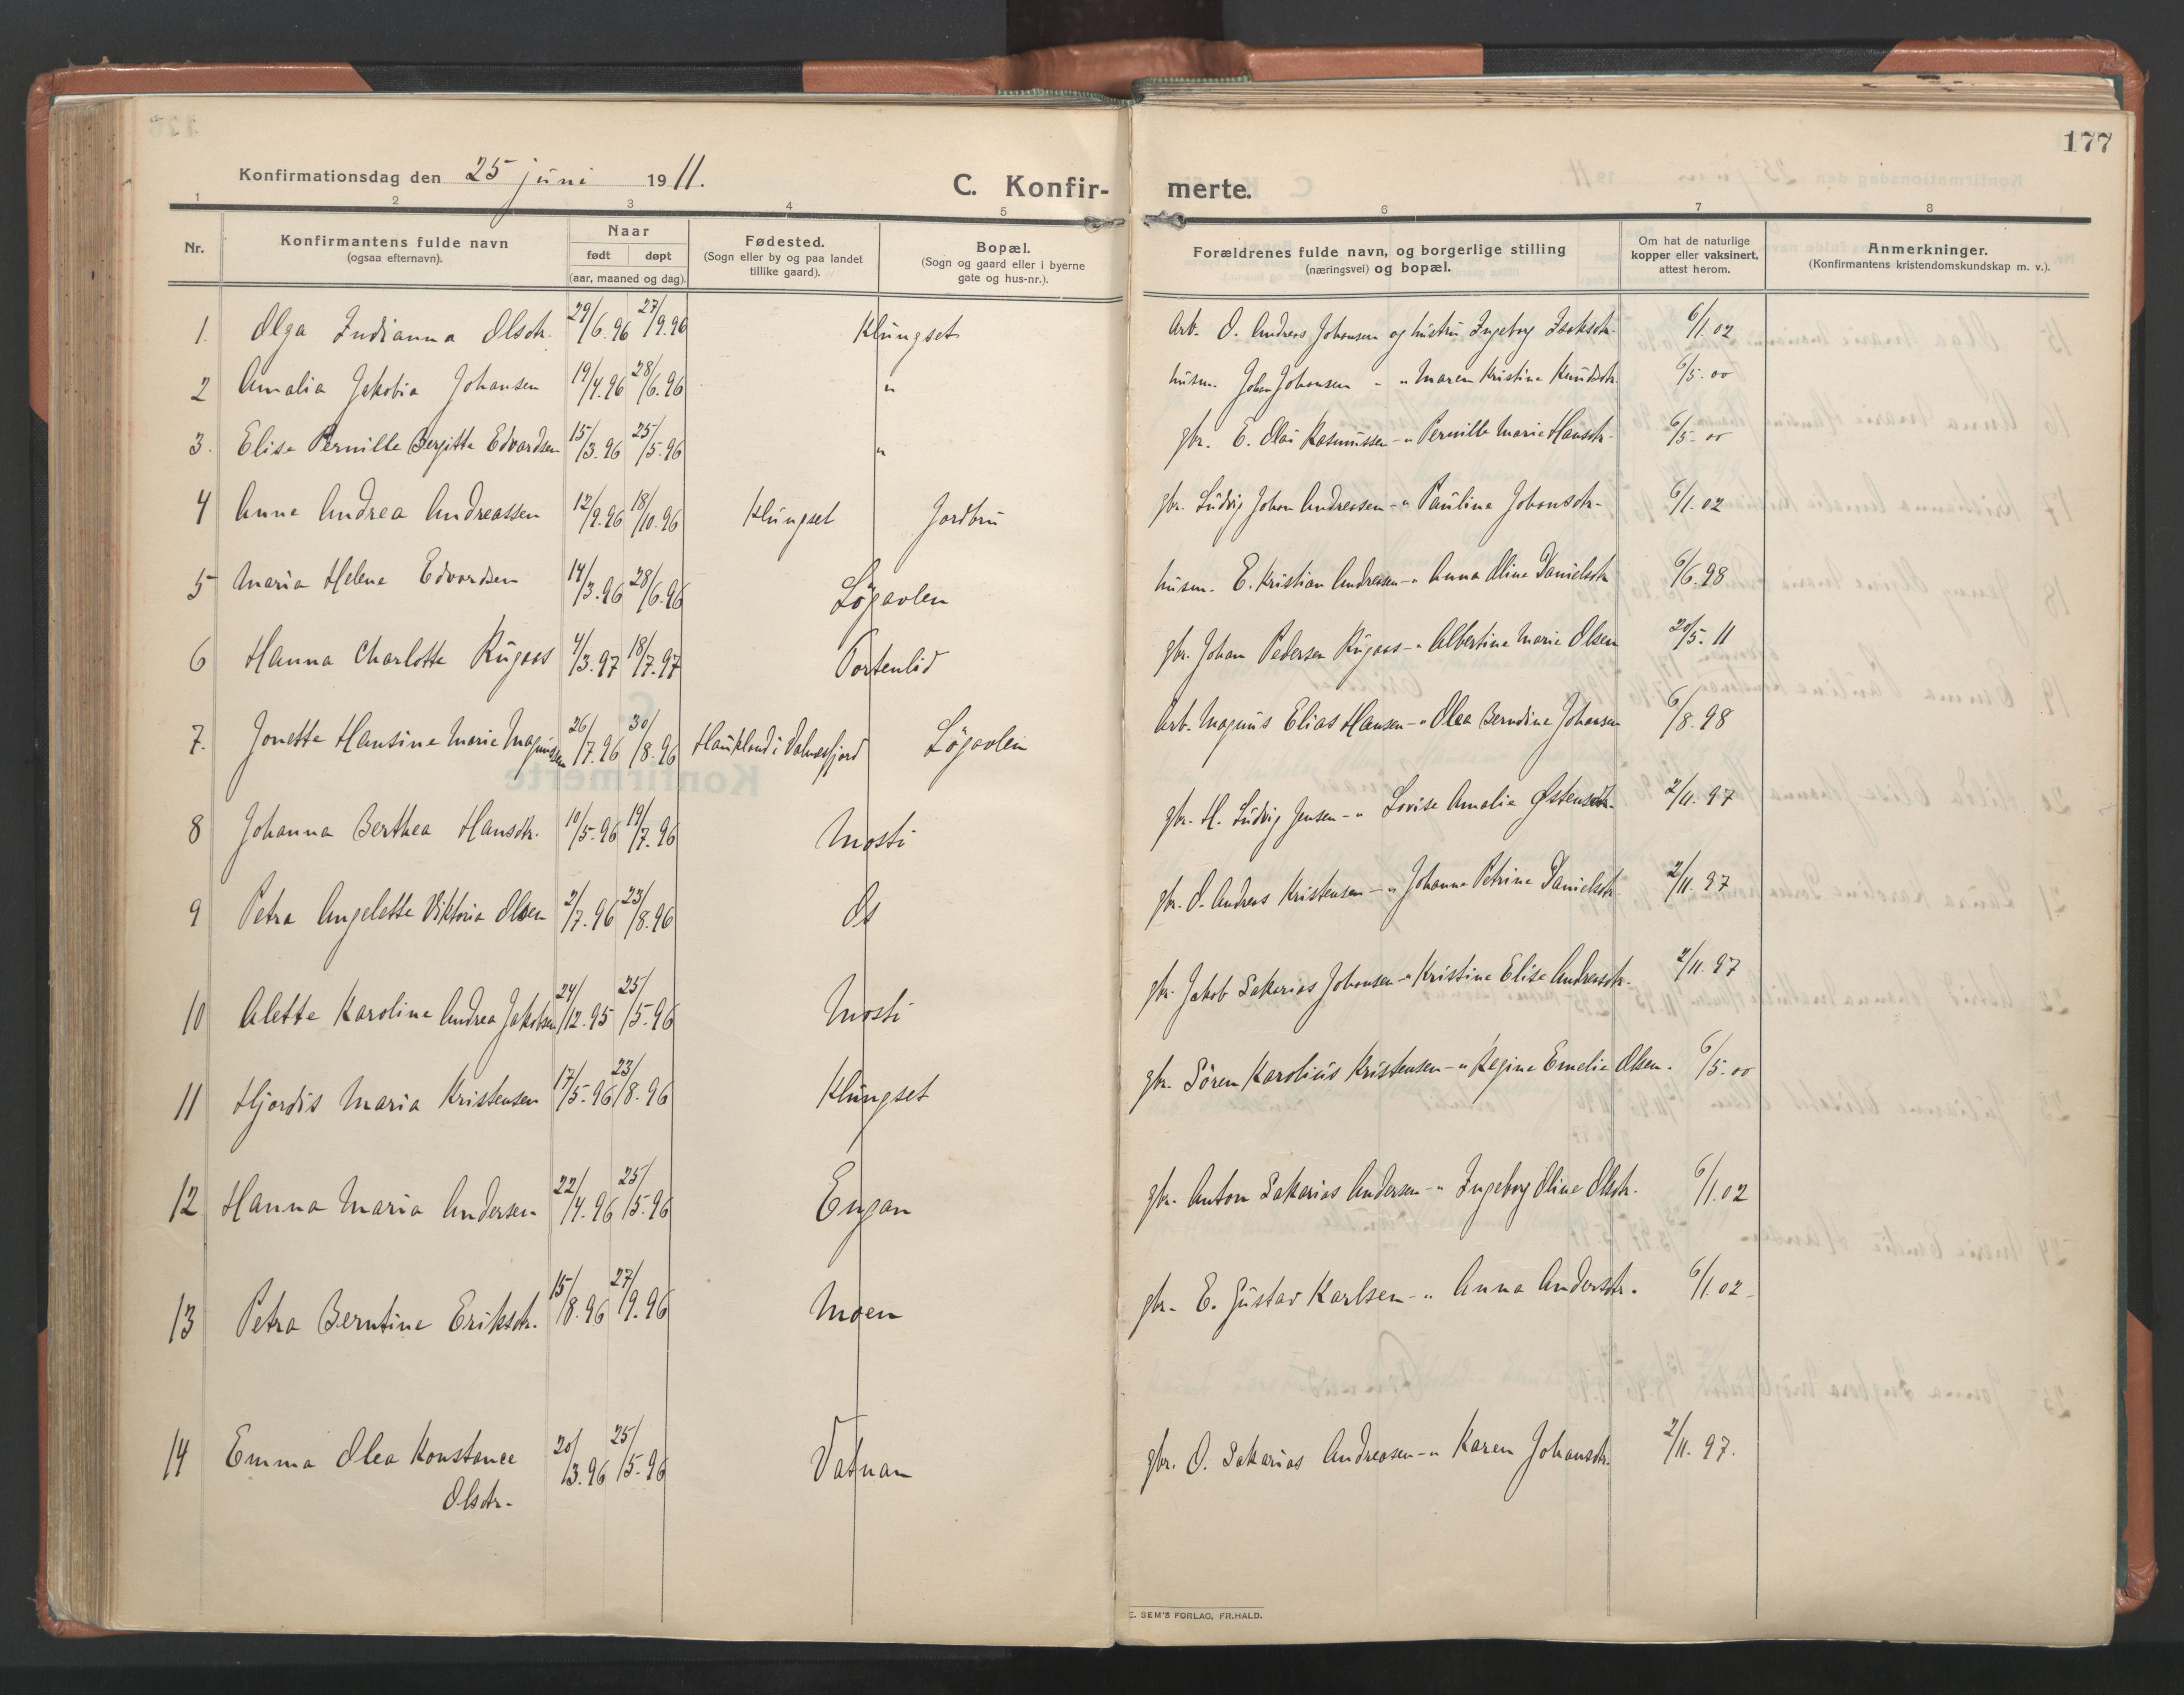 177
Konfirmationsdag den 25 juni 1911. C. Konfir- merte.
1 2 3 4 5 6 7 8
Nr. Konfirmantens fulde navn (ogsaa efternavn). Naar født døpt (aar, maaned og dag). Fødested. (Sogn eller by og paa landet tillike gaard). Bopæl. (Sogn og gaard eller i byerne gate og hus-nr.). Forældrenes fulde navn, og borgerlige stilling (næringsvei) og bopæl. Om hat de naturlige kopper eller vaksinert, attest herom. Anmerkninger. (Konfirmantens kristendomskundskap m. v.).
1. Olga Indianna Olsdtr. 29/6.96 27/9.96 Klungset Arb. O. Andreas Johansen og hustru Ingeborg Isaksdtr. 6/1.02
2 Amalia Jakobia Johansen 19/4.96 28/6.96 " husm. Johan Johansen - " Maren Kristine Knudsdtr. 6/5.00
3. Elise Pernille Bergitte Edvardsen 15/3.96 25/5.96 " gbr. E. Olai Rasmussen - " Pernille Marie Hansdtr. 6/5.00
4 Anne Andrea Andreassen 12/9.96 18/10.96 Klungset Jordbru gbr. Ludvig Johan Andreassen - " Paulina Johansdtr. 6/1.02
5 Maria Helene Edvardsen 14/3.96 28/6.96 Løgavlen husm. E. Kristian Andreasen - " Anna Oline Danielsdtr. 6/6.98
6 Hanna Charlotte Rugaas 4/3.97 18/7.97 Tortenlid gbr. Johan Pedersen Rugaas - " Albertine Marie Olsen 20/5.11
7. Jonette Hansine Marie Magnussen 26/7.96 30/8.96 Haukland i Valnesfjord Løgavlen Arb. Magnus Elias Hansen - " Olea Berndine Johansen 6/8.98
8 Johanna Berthea Hansdtr. 10/5.96 19/7.96 Mosti gbr. H. Ludvig Jensen - " Lovise Amalie Østensdtr. 2/11.97
9 Petra Angelette Viktoria Olsen 2/7.96 23/8.96 Os gbr. O. Andreas Kristensen - " Johanna Petrine Danielsdtr. 2/11.97
10 Alette Karoline Andrea Jakobsen 24/12.95 25/5.96 Mosti gbr. Jakob Sakarias Johansen - " Kristine Elise Andreasdtr. 2/11.97
11 Hjordis Maria Kristensen 17/5.96 23/8.96 Klungset gbr. Sören Karolius Kristensen - " Regine Emelie Olsen. 6/5.00
12 Hanna Maria Andersen 22/4.96 25/5.96 Engan gbr. Anton Sakarias Andersen - " Ingeborg Oline Olsdtr. 6/1.02
13 Petra Berntine Eriksdtr. 15/8.96 27/9.96 Moen gbr. E. Gustav Karlsen - " Anna Andersdtr. 6/1.02
14 Emma Olea Konstance 20/3.96 25/5.96 Vatnan gbr. O. Sakarias Andreasen - " Karen Johansdtr. 2/11.97.
Olsdtr.
E. SEM'S FORLAG, FR.HALD.